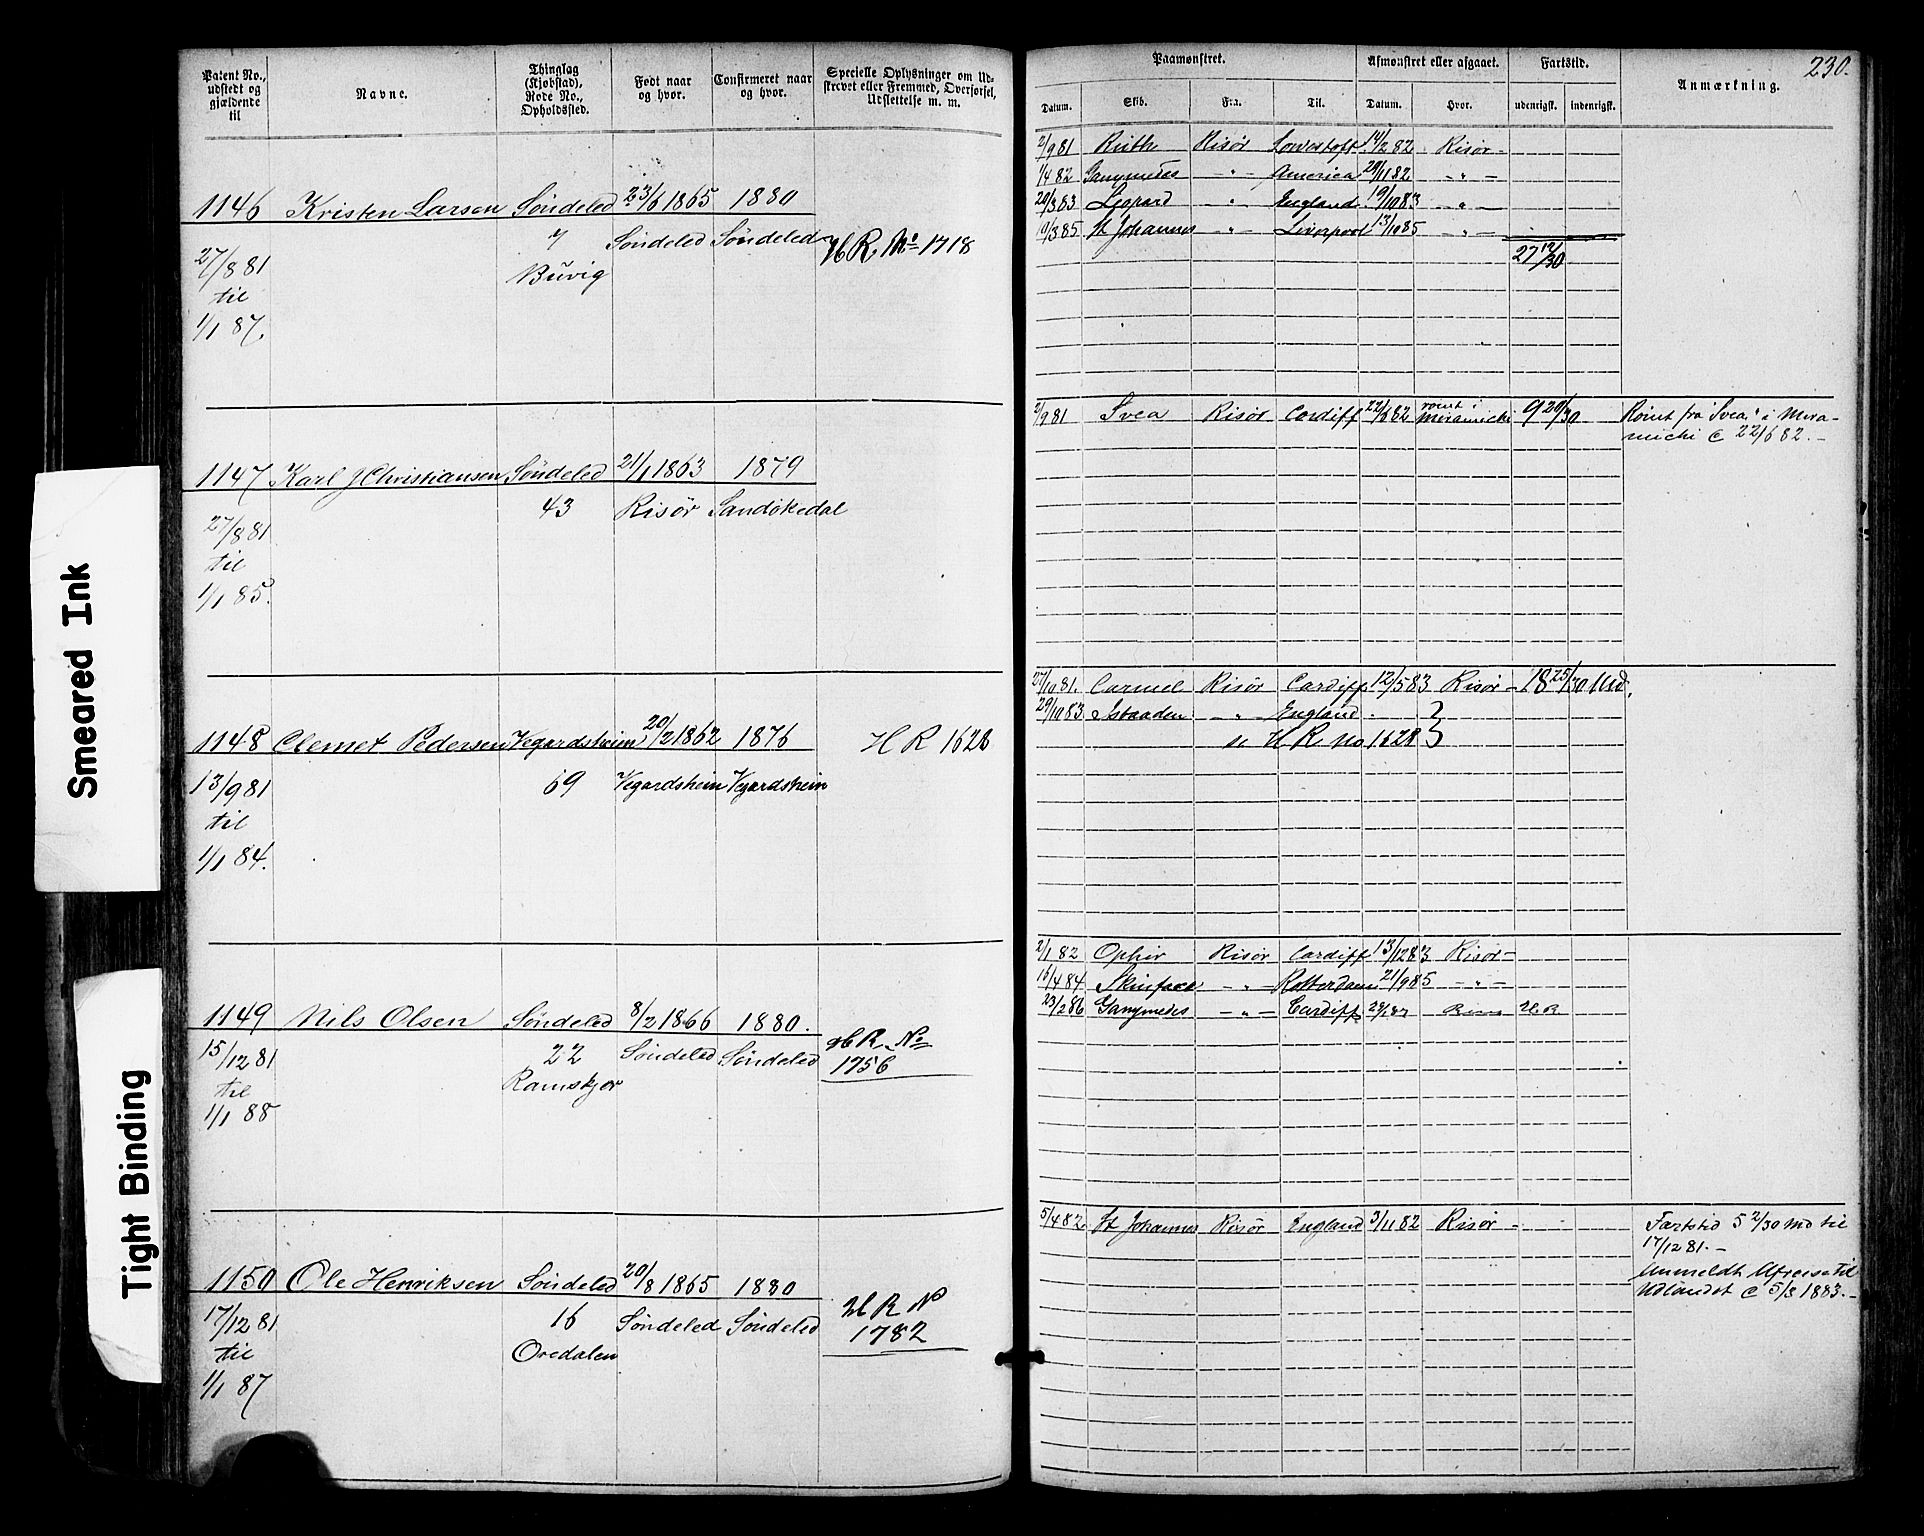 Patent No., udstedt og gjældende til
Navne.
Thinglag (Kjøbstad), Rode No., Opholdssted.
Født naar og hvor.
Confirmeret naar og hvor.
Specielle Oplysninger om Udskrevet eller Fremmed, Overførsel, Udslettelse m. m.
Paamønstret.
Afmønstret eller afgaaet.
Fartstid.
Anmærkning.
230.
Datum. Skib. Fra. Til. Datum. Hvor. udenrigsk. indenrigsk.
1146 Kristen Larsen Søndeled 23/6 1865 1880
7 Søndeled Søndeled H R No 1718
27/8 81 Buvig
til
1/1 87.
2/9 81 Ruth Risør Lowestoft 14/2 82 Risør -
1/4 82 Ganymedes -"- America 29/11 82 -"-
20/3 83 Legrard -"- England 19/10 83 -"-
10/3 85 St Johannes -"- Liverpool 13/10 85 -"-
27 12/30
1147 Karl J Christiansen Søndeled 21/1 1863 1879
43 Risør Sandökedal
27/8 81
til
1/1 85.
2/9 81 Svea Risør Cardiff 22/6 82 rømt i Miramichi 9 20/30 Rømt fra "Svea" i Mira-
michi c 22/6 82. -
1148 Clemet Pedersen Vegardsheim 20/2 1862 1876 H R 1628
69 Vegardsheim Vegardsheim
13/9 81
til
1/1 84.
27/10 81. Carmel Risør Cardiff 12/5 83 Risør - 18 25/30 Md.
29/10 83 Istaaden -"- England.
se H R No 1628
1149 Nils Olsen Søndeled 8/2 1866 1880.
22 Søndeled Søndeled H R. No
1756
15/12 81 Ramskjør
til
1/1 88
2/1 82 Ophir Risør Cardiff 13/12 83 Risør -
16/4 84 -"- Rotterdam 21/9 85 -"-
23/2 86 Ganymedes -"- Cardiff HR
1150 Ole Henriksen Søndeled 20/8 1865 1880
16 Søndeled Søndeled H R N
1782
17/12 81 Oredalen
til
1/1 87
5/4 82 St Johannes Risør England 3/11 82 Risør - Fartstid 5 2/30 Md til
17/12 81. -
Anmeldt Afreise til
Udlandet c 5/3 1883. -
Smeared Ink
Tight Binding